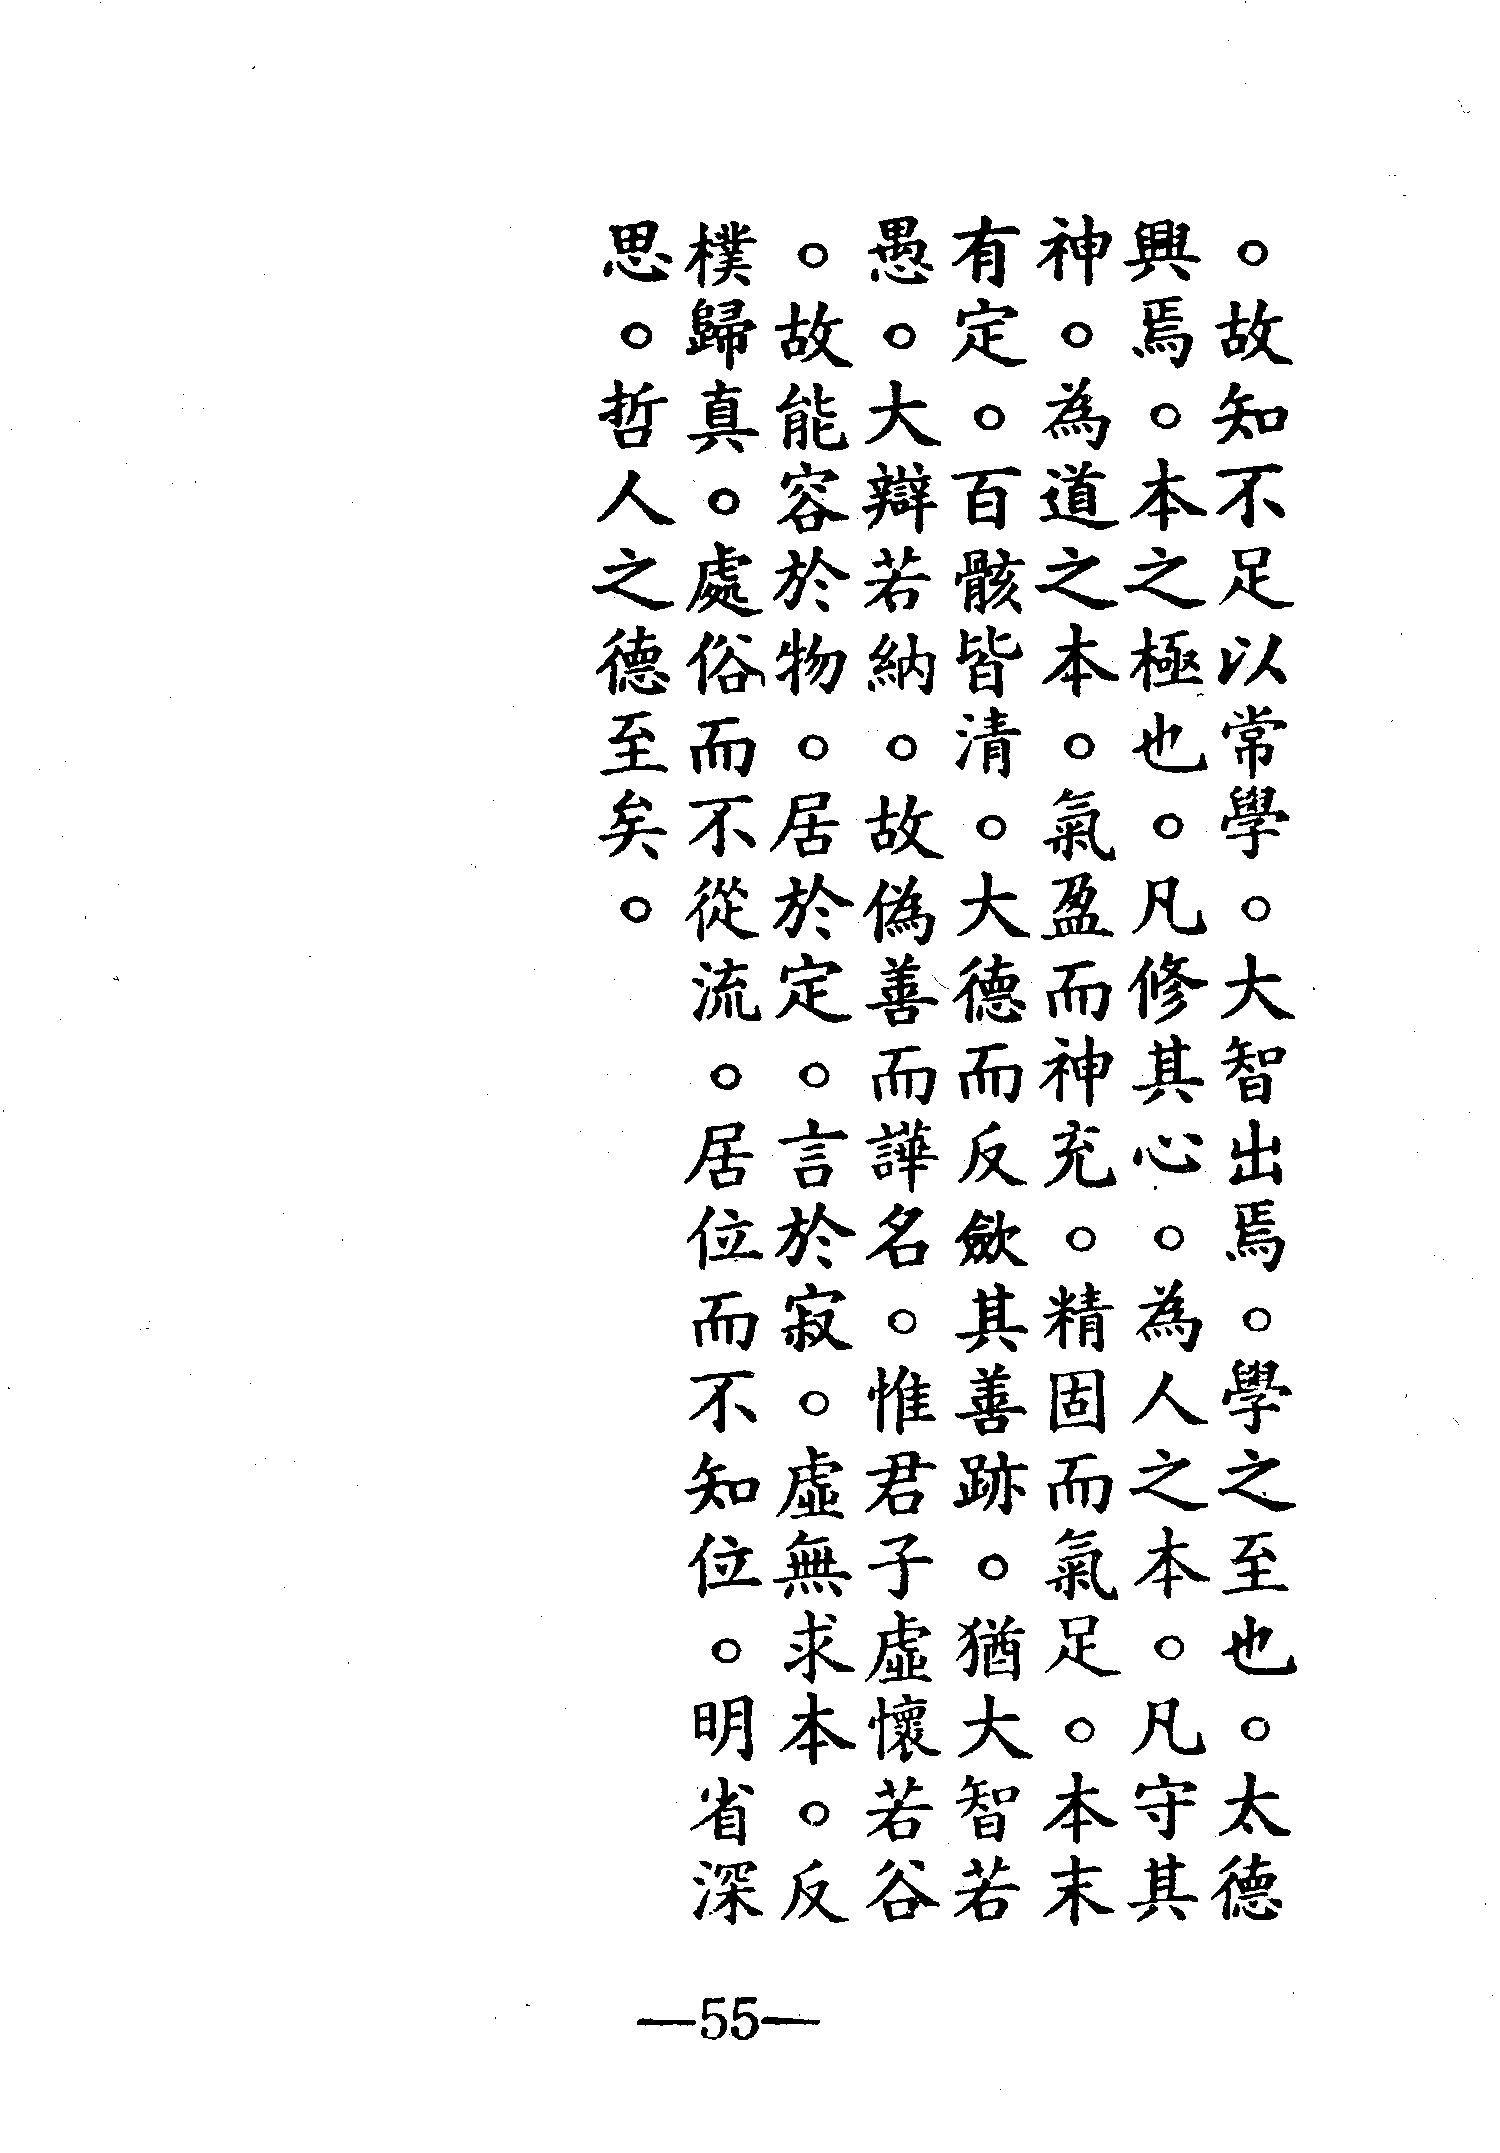 。故知不足以常學。大智出焉。學之至也。太德
興焉。本之極也。凡修其心。為人之本。凡守其
神。為道之本。氣盈而神充。精固而氣足。本末
有定。百骸皆清。大德而反歛其善跡。猶大智若
愚。大辯若納。故偽善而譁名。惟君子虛懷若谷
。故能容於物。居於定。言於寂。虛無求本。反
樸歸真。處俗而不從流。居位而不知位。明省深
思。哲人之德至矣。
—55—